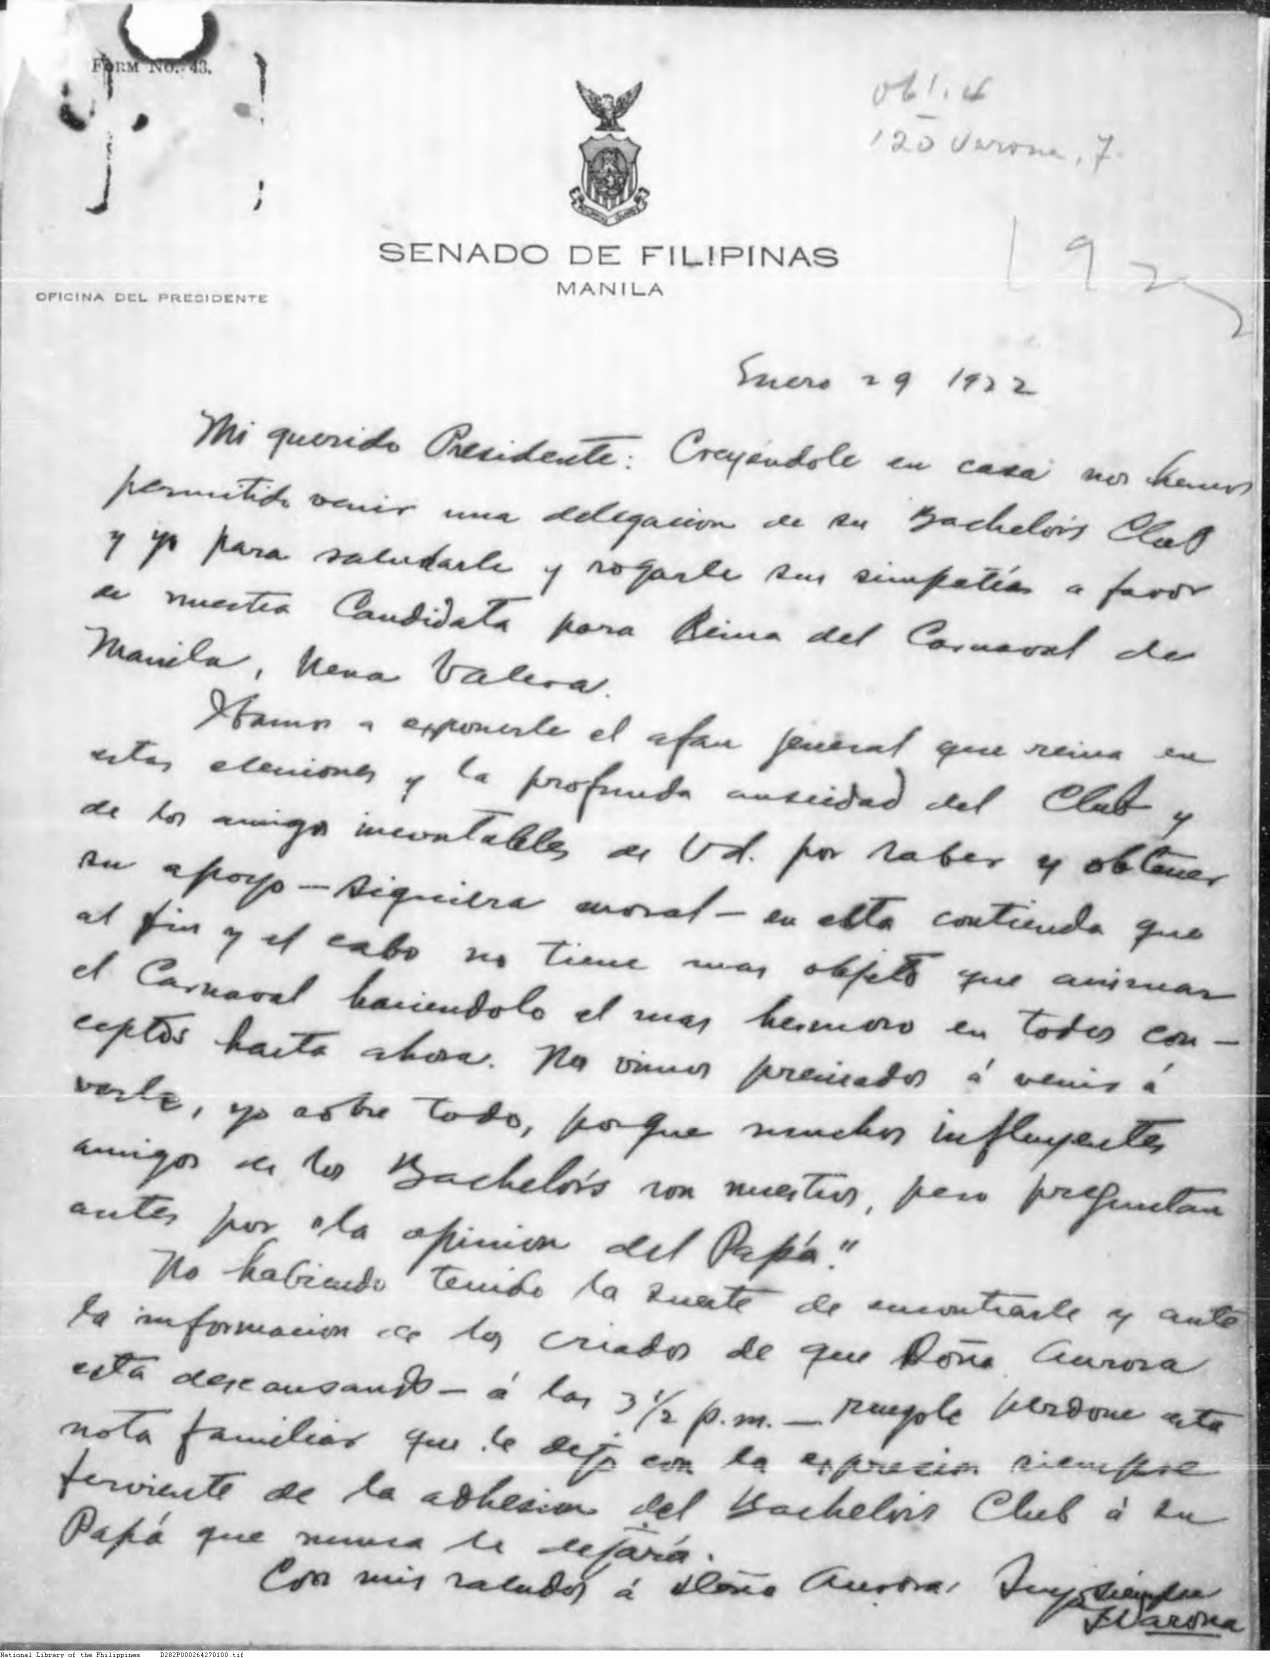 FORM NO. 43.
120 Varona, 7.
SENADO DE FILIPINAS
MANILA
OFICINA DEL PRESIDENTE
192
Enero 29 1922
Mi querido Presidente: Creyéndole en casa nos hemos
permitido venir una delegacion de su Bachelor's Club
y yo para saludarle y rogarle sus simpatías a favor
de nuestra Candidata para Reina del Carnaval de
Manila, Nena Valera.
Ibamos a exponerle el afan general que reina en
estas elecciones y la profunda ansiedad del Club y
de los amigos incontables de Vd. por saber y obtener
su apoyo — siquiera moral — en esta contienda que
al fin y al cabo no tiene mas objeto que animar
el Carnaval haciendolo el mas hermoso en todos con-
ceptos hasta ahora. Nos vimos precisados á venir á
verle, yo sobre todo, porque muchos influyentes
amigos de los Bachelors son nuestros, pero preguntan
antes por "la opinion del Papá."
No habiendo tenido la suerte de encontrarle y ante
la informacion de los criados de que Doña Aurora
está descansando — á las 3 1/2 p.m. — ruegole perdone esta
nota familiar que le dejo con la expresion siempre
ferviente de la adhesion del Bachelors Club á su
Papá que nunca le dejará.
Con mis saludos á Doña Aurora, Suyo siempre
FVarona
National Library of the Philippines D282P000264270100.tif